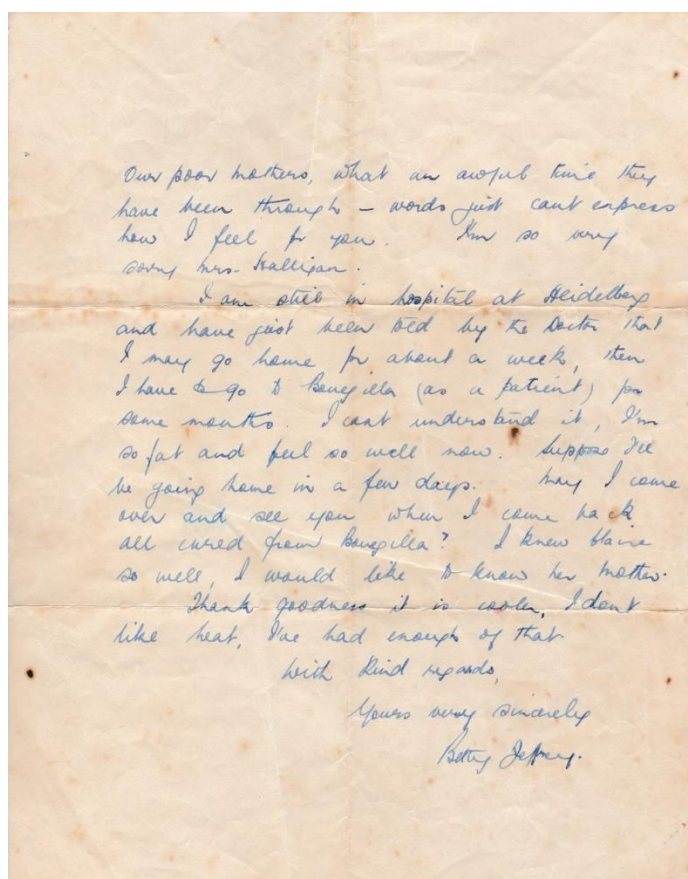 Our poor mothers, what an awful time they
have been through – words just cant express
how I feel for you. I'm so very
sorry Mrs. Halligan.
I am still in hospital at Heidelberg
and have just been told by the Doctor that
I may go home for about a week, then
I have to go to Bonegilla (as a patient) for
some months. I cant understand it, I'm
so fat and feel so well now. Suppose I'll
be going home in a few days. May I come
over and see you when I come back
all cured from Bonegilla? I knew
so well, I would like to know her mother.
Thank goodness it is cooler, I dont
like heat, I've had enough of that
With Kind regards,
Yours very sincerely
Betty Jeffrey.